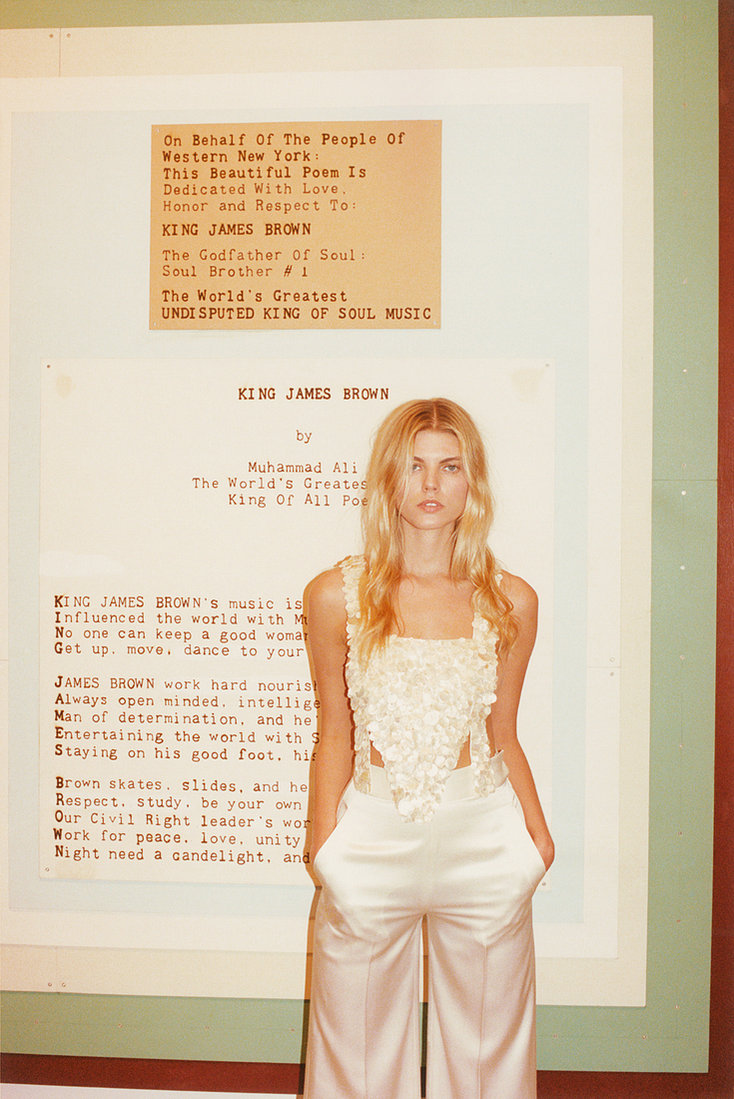 On Behalf Of The People Of
Western New York:
This Beautiful Poem Is
Dedicated With Love,
Honor and Respect To:
KING JAMES BROWN
The Godfather Of Soul:
Soul Brother # 1
The World's Greatest
UNDISPUTED KING OF SOUL MUSIC
KING JAMES BROWN
by
Muhammad Ali
The World's Greates
King Of All Poe
KING JAMES BROWN's music is
Influenced the world with Mu
No one can keep a good woma
Get up, move, dance to your
JAMES BROWN work hard nourish
Always open minded, intellige
Man of determination, and he'
Entertaining the world with S
Staying on his good foot, his
Brown skates, slides, and he
Respect, study, be your own
Our Civil Right leader's wor
Work for peace, love, unity
Night need a candelight, and